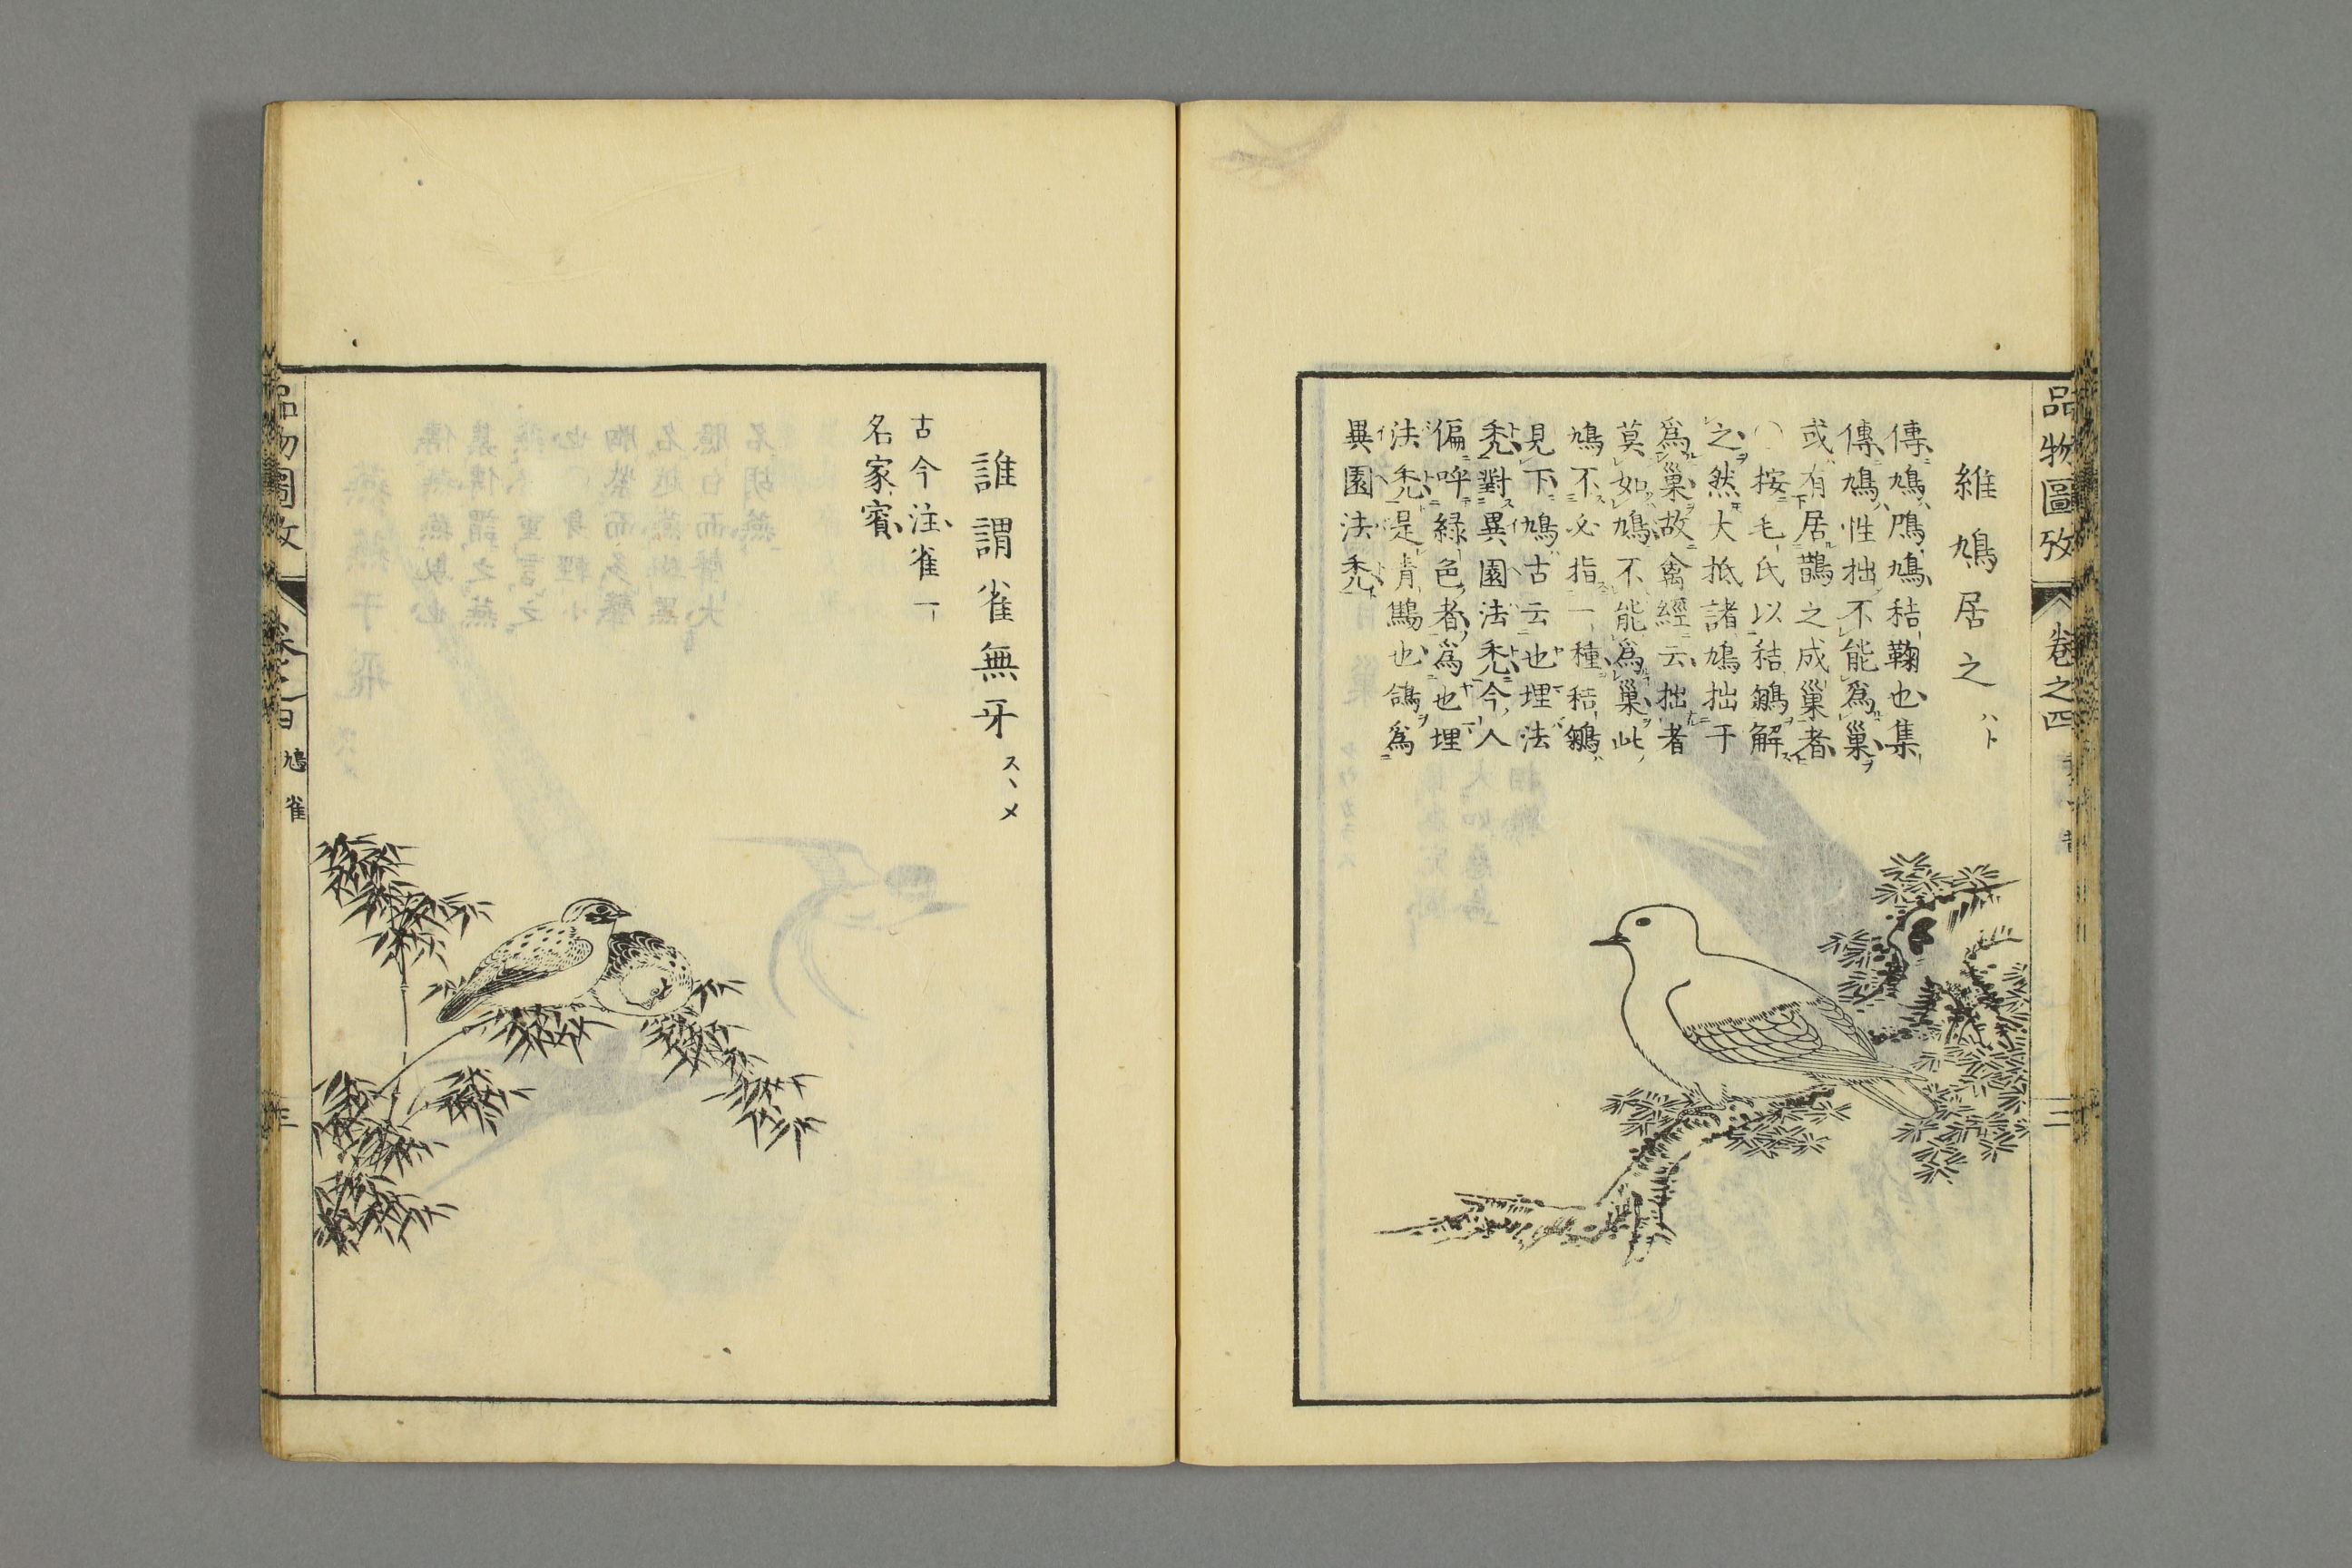 品物圖攷 卷之四
維鳩居之 ハト
傳鳩鳲鳩秸鞠也集
傳鳩性拙不能爲巢
或有居鵲之成巢者
〇按毛氏以秸鶵解
之然大抵諸鳩拙于
爲巢故禽經云拙者
莫如鳩不能爲巢此
鳩不必指一種秸鶵
見下鳩古云也埋法
禿對異園法禿今人
偏呼綠色者爲也埋
法禿是青鷦也鴿爲
異園法禿
二
誰謂雀無牙 スヽメ
古今注雀一
名家賓
品物圖攷 卷之四 鳩 雀
三